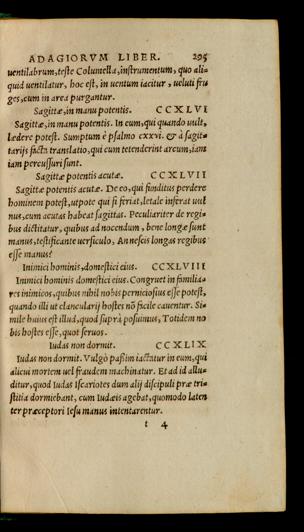 ADAGIORVM LIBER. 295
uentilabrum, teste Columella, instrumentum, quo ali-
quid uentilatur, hoc est, in uentum iacitur, ueluti fru
ges, cum in area purgantur.
Sagittæ, in manu potentis. CCXLVI
Sagittæ, in manu potentis. In eum, qui quando uult,
lædere potest. Sumptum è psalmo cxxvi. & à sagit-
tarijs facta translatio, qui cum tetenderint arcum, iam
iam percussuri sunt.
Sagittæ potentis acutæ. CCXLVII
Sagittæ potentis acutæ. De eo, qui funditus perdere
hominem potest, utpote qui si feriat, letale inferat uul
nus, cum acutas habeat sagittas. Peculiariter de regi-
bus dictitatur, quibus ad nocendum, bene longæ sunt
manus, testificante uersiculo, An nescis longas regibus
esse manus?
Inimici hominis, domestici eius. CCXLVIII
Inimici hominis domestici eius. Congruet in familia-
res inimicos, quibus nihil nobis perniciosius esse potest,
quando illi ut clancularij hostes nō facile cauentur. Si-
mile huius est illud, quod suprà posuimus, Totidem no
bis hostes esse, quot seruos.
Iudas non dormit. CCXLIX
Iudas non dormit. Vulgò passim iactatur in eum, qui
alicui mortem uel fraudem machinatur. Et ad id allu-
ditur, quod Iudas Iscariotes dum alij discipuli præ tri-
stitia dormiebant, cum Iudæis agebat, quomodo laten
ter præceptori Iesu manus intentarentur.
t 4